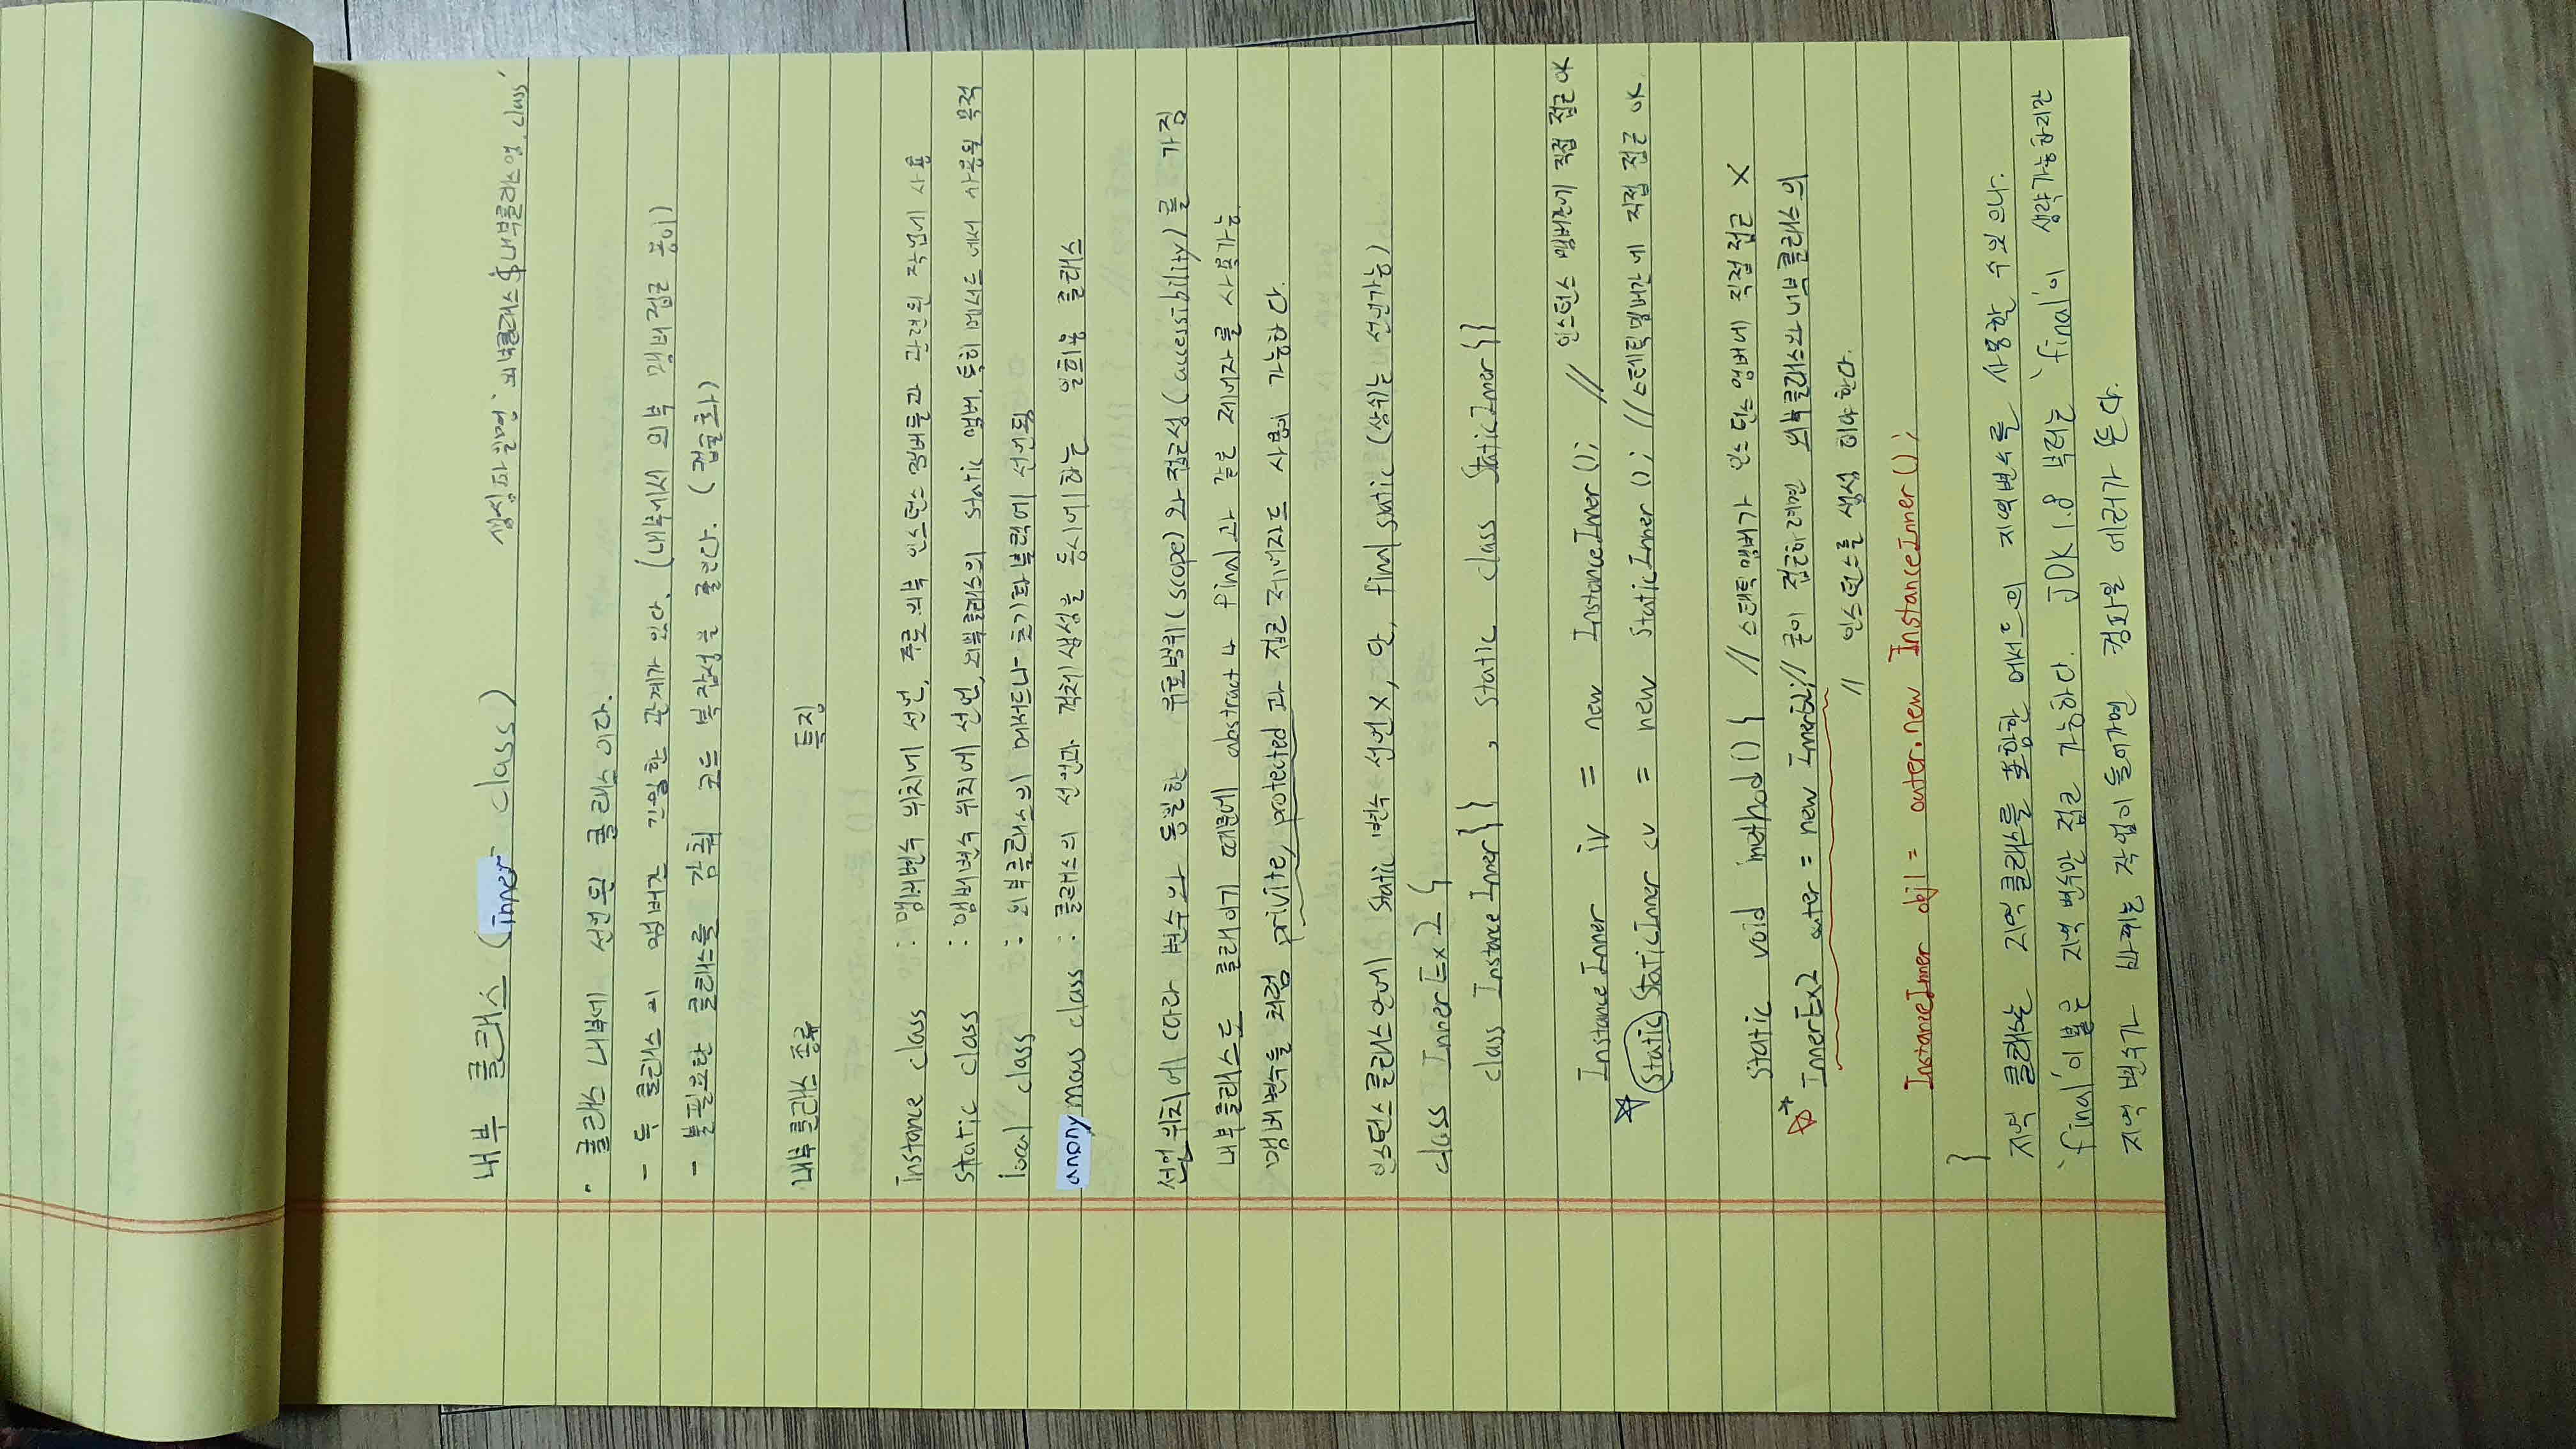 내부 클래스 (inner class) 생성파일명 '외부클래스$내부클래스명.class'
· 클래스 내부에 선언된 클래스이다.
- 두 클래스의 멤버간 긴밀한 관계가 있다. (내부에서 외부 멤버접근 용이)
- 불필요한 클래스를 감춰 코드 복잡성을 줄인다. (캡슐화)
내부클래스 종류 특징
instance class : 멤버변수 위치에 선언, 주로 외부 인스턴스 멤버들과 관련된 작업에 사용
static class : 멤버변수 위치에 선언, 외부클래스의 static 멤버. 특히 메서드에서 사용될 목적
local class : 외부클래스의 메서드나 초기화 블럭에 선언됨
anonymous class : 클래스의 선언과 객체생성을 동시에 하는 일회용 클래스
선언위치에 따라 변수와 동일한 유효범위(scope)와 접근성(accessibility)를 가짐
내부클래스도 클래이기 때문에 abstract나 final과 같은 제어자를 사용가능.
멤버변수들 처럼 privite, protected과 접근제어자도 사용이 가능하다.
인스턴스클래스안에 static 변수 선언X, 단, final static (상수)는 선언가능)
class InnerEx2 {
class InstanceInner{} , static class StaticInner{}
InstanceInner iv = new InstanceInner(); // 인스턴스 멤버간에 직접 접근 OK
static StaticInner cv = new StaticInner(); // 스테틱멤버간에 직접 접근 OK.
static void method(){ // 스태틱멤버가 인스턴스멤버에 직접접근 X
InnerEx2 outer = new InnerEx2; // 굳이 접근하려면 외부클래스와 내부클래스의
// 인스턴스를 생성 해야한다.
InstanceInner obj1 = outer.new InstanceInner();
}
지역 클래스는 지역클래스를 포함한 메서드의 지역변수를 사용할 수 있으나.
'final'이 붙은 지역 변수만 접근 가능하다. JDK1.8 부터는 'final'이 생략가능하지만
지역 변수가 바뀌는 작업이 들어가면 컴파일 에러가 뜬다.